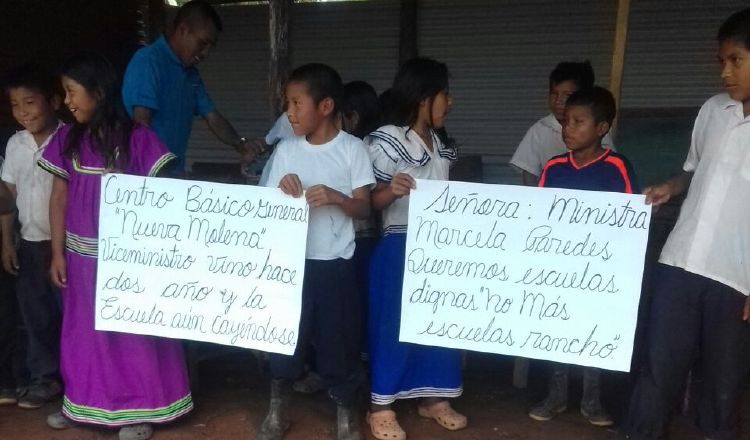 Centro Básico General
"Nueva Molena"
Viceministro vino hace
dos año y la
Escuela aún Cayéndose.
Señora: Ministra
Marcela Paredes
Queremos escuelas
dignas "no Más
escuelas rancho".